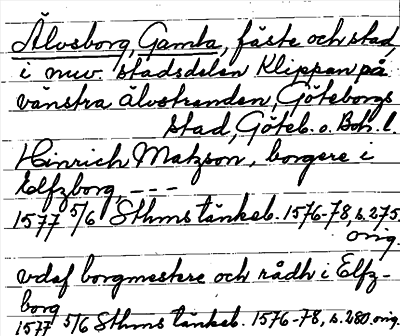 Älvsborg, Gamla, fäste och stad
i nuv. stadsdelen Klippan på
vänstra älvstranden, Göteborgs
stad, Göteb. o. Boh. l.
Hinrich Matzson, borgere i
Elfzborg ---
1577 5/6 Sthms tänkeb. 1576-78, s. 275,
orig.
vdaf borgmestere och rådh i Elfz-
borg
1577 5/6 Sthms tänkeb. 1576-78, s. 280, orig.